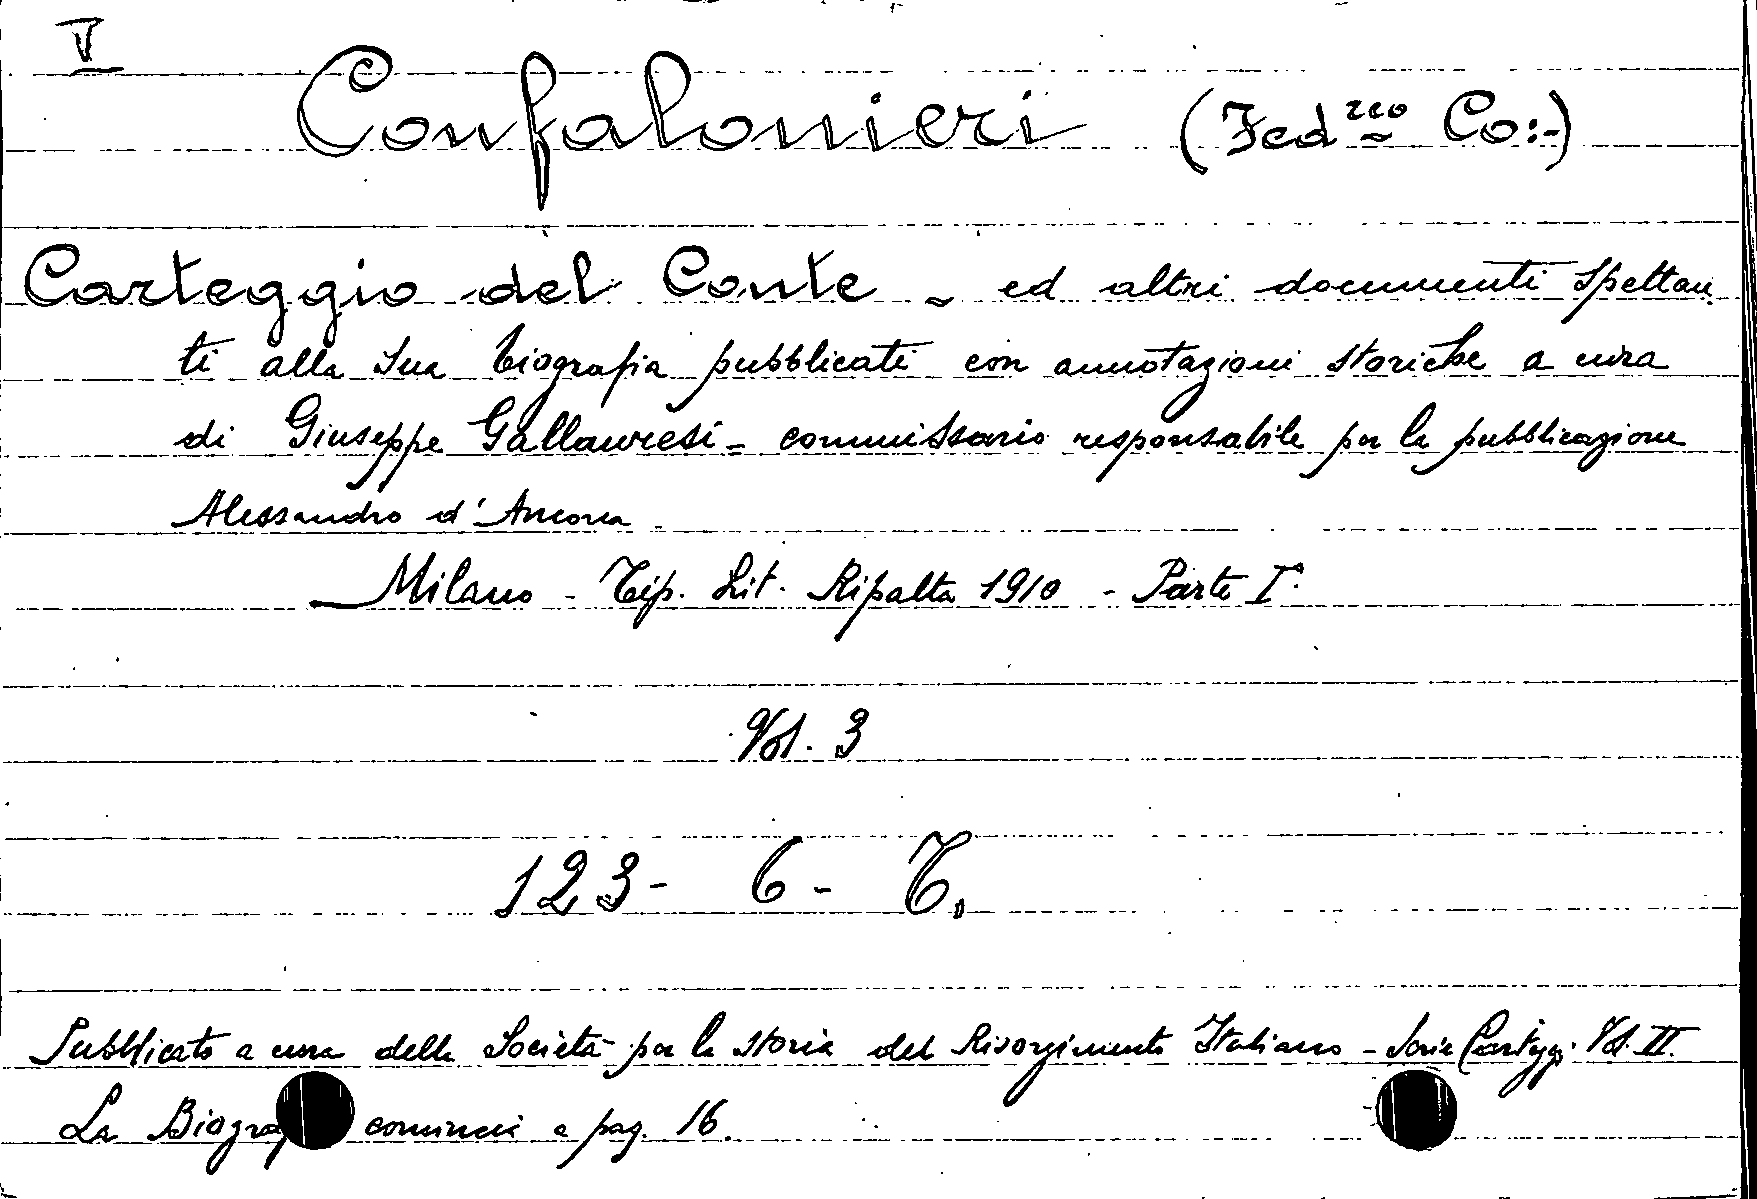 V
Confalonieri (Fed.rco Co:-)
Carteggio del Conte - ed altri documenti spettan
ti alla sua biografia pubblicati con annotazioni storiche a cura
di Giuseppe Gallavresi - commissario responsabile per la pubblicazione
Alessandro d'Ancona
Milano - Tip. Lit. Ripalta 1910 - Parte Iª
Vol. 3
123 - 6 - T.
Pubblicato a cura della Società per la storia del Risorgimento Italiano - Serie Carteggi. Vol. II.
La Biogra comincia a pag. 16.